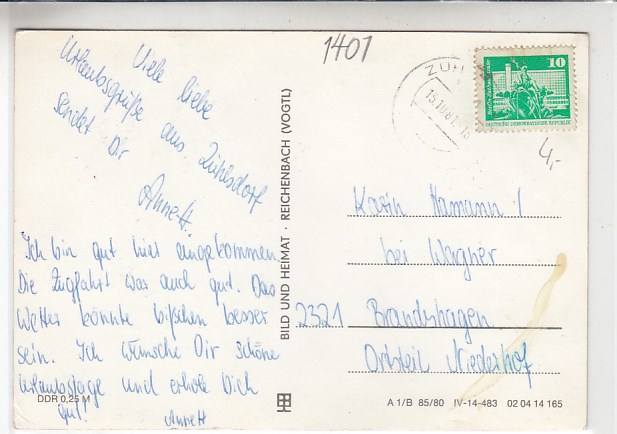 1401
Viele liebe
Urlaubsgrüße aus Zühlsdorf
sendet Dir
Annett.
Ich bin gut hier angekommen.
Die Zugfahrt war auch gut. Das
Wetter könnte bißchen besser
sein. Ich wünsche Dir schöne
Urlaubstage und erhole Dich
gut! Annett
DDR 0,25 M
BILD UND HEIMAT · REICHENBACH (VOGTL)
ZÜH
15.10.81
10
DEUTSCHE DEMOKRATISCHE REPUBLIK
4,-
Karin Hamann
bei Wagner
2321 Brandshagen
Ortsteil Niederhof
A 1/B 85/80 IV-14-483 02 04 14 165